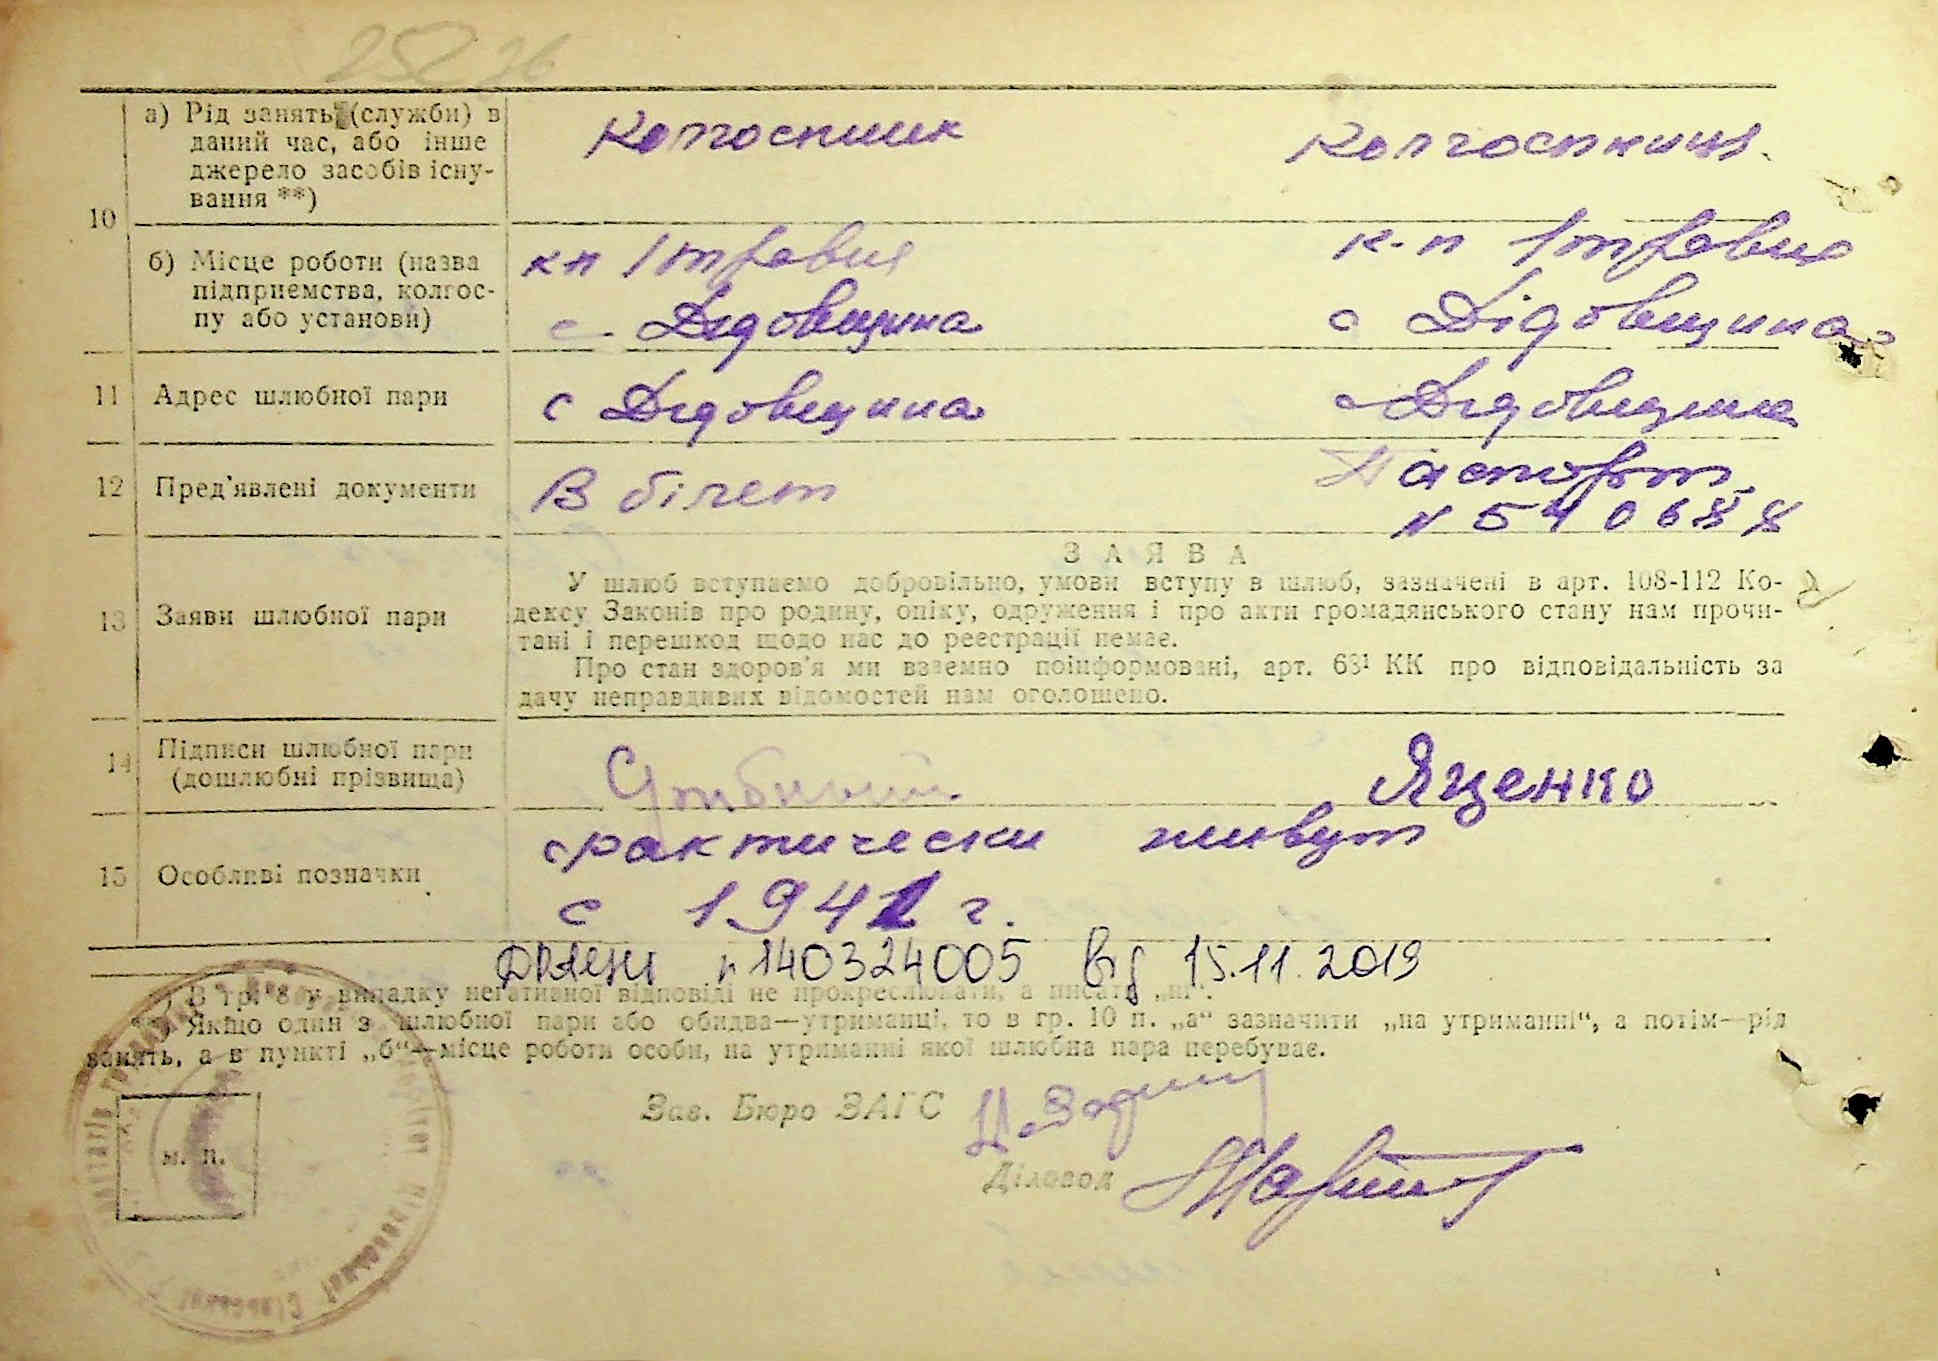 25 26
а) Рід занять (служби) в даний час, або інше джерело засобів існування **)
Колгоспник Колгоспниця.
10
б) Місце роботи (назва підприємства, колгоспу або установи)
кп 1 травня к-п 1 травня
с. Дідовщина с Дідовщина
11 Адрес шлюбної пари с Дідовщина с Дідовщина
12 Пред'явлені документи В білет Паспорт
N 540688
З А Я В А
13 Заяви шлюбної пари
У шлюб вступаємо добровільно, умови вступу в шлюб, зазначені в арт. 108-112 Ко-
дексу Законів про родину, опіку, одруження і про акти громадянського стану нам прочи-
тані і перешкод щодо нас до реєстрації немає.
Про стан здоров'я ми взаємно поінформовані, арт. 68¹ КК про відповідальність за
дачу неправдивих відомостей нам оголошено.
14 Підписи шлюбної пари (дошлюбні прізвища) Яценко
15 Особливі позначки фактически живут
с 1941 г.
N 140324005 від 15.11.2019
*) В гр. 8 у випадку негативної відповіді не прокреслювати, а писати „ні“.
**) Якщо один з шлюбної пари або обидва—утриманці, то в гр. 10 п. „а“ зазначити „на утриманні“, а потім—рід
занять, а в пункті „б“—місце роботи особи, на утриманні якої шлюбна пара перебуває.
Зав. Бюро ЗАГС
м. п.
Діловод